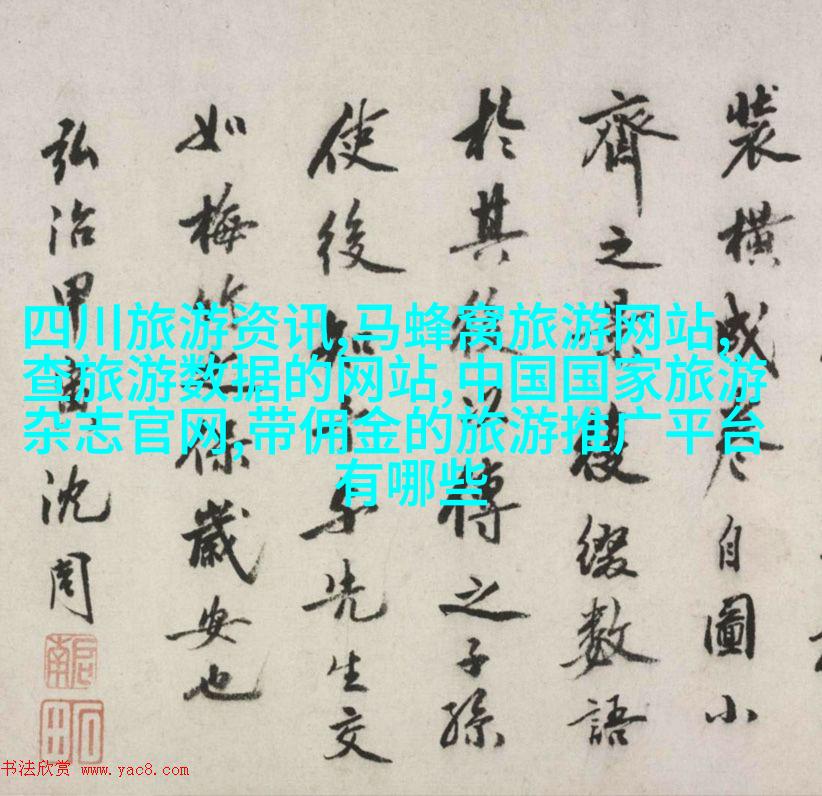 四川旅游资讯,马蜂窝旅游网站,
查旅游数据的网站,中国国家旅游
杂志官网,带佣金的旅游推广平台
有哪些
裝橫成卷自圖小
齊之後綴數語
於其後以傳之子孫
使後知先生交
如梅竹保歲安也
弘治甲寅沈周
啟南
书法欣赏 www.yac8.com